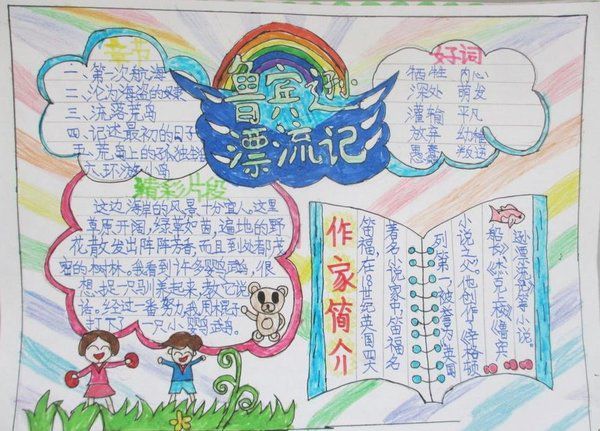 鲁宾逊
漂流记
章节
一、第一次航海
二、沦为海盗的奴隶
三、流落荒岛
四、记述最初的日子
五、荒岛上的孤独生
六、环游小岛
好词
牺牲 内心
深处 萌发
灌输 平凡
放弃 幼稚
愚蠢 叛逆
精彩片段
这边海岸的风景十分宜人。这里
草原开阔,绿草如茵,遍地的野
花散发出阵阵芳香,而且到处都茂
密的树林。我看到许多鹦鹉,很
想捉一只驯养起来,教它说
话。经过一番努力,我用棍子
打下了一只小鹦鹉。
作家简介
笛福,在18世纪英国四大
著名小说家中笛福名
列第一,被誉为英国
小说之父。他创作《辛格顿
船长》《杰克上校》《鲁宾
逊漂流记》等小说。